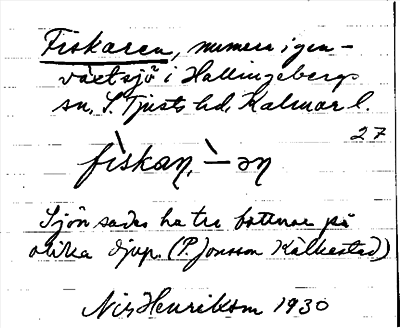 Fiskaren, numera igen-
växt sjö i Hallingebergs
sn, S. Tjusts hd, Kalmar l.
27
fìskan, `–ən
Sjön sades ha tre bottnar på
olika djup. (P. Jonsson Kälkestad)
Nils Henriksson 1930